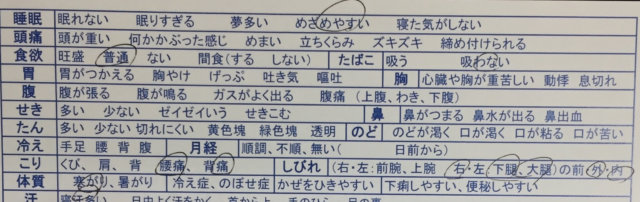 睡眠 眠れない 眠りすぎる 夢多い めざめやすい 寝た気がしない
頭痛 頭が重い 何かかぶった感じ めまい 立ちくらみ ズキズキ 締め付けられる
食欲 旺盛 普通 ない 間食(する しない) たばこ 吸う 吸わない
胃 胃がつかえる 胸やけ げっぷ 吐き気 嘔吐 胸 心臓や胸が重苦しい 動悸 息切れ
腹 腹が張る 腹が鳴る ガスがよく出る 腹痛 (上腹、わき、下腹)
せき 多い 少ない ゼイゼイいう せきこむ 鼻 鼻がつまる 鼻水が出る 鼻出血
たん 多い 少ない 切れにくい 黄色塊 緑色塊 透明 のど のどが渇く 口が渇く 口が粘る 口が苦い
冷え 手足 腰 背 腹 月経 順調、不順、無い( 日前)
こり くび、肩、背 腰痛 背痛 しびれ (右・左:前腕、上腕 右・左 下腿、大腿)の前・外・内
体質 寒がり、暑がり 冷え症、のぼせ症 かぜをひきやすい 下痢しやすい、便秘しやすい
汗 寝汗多い 日中よく汗をかく 首から上 手のひら 足の裏